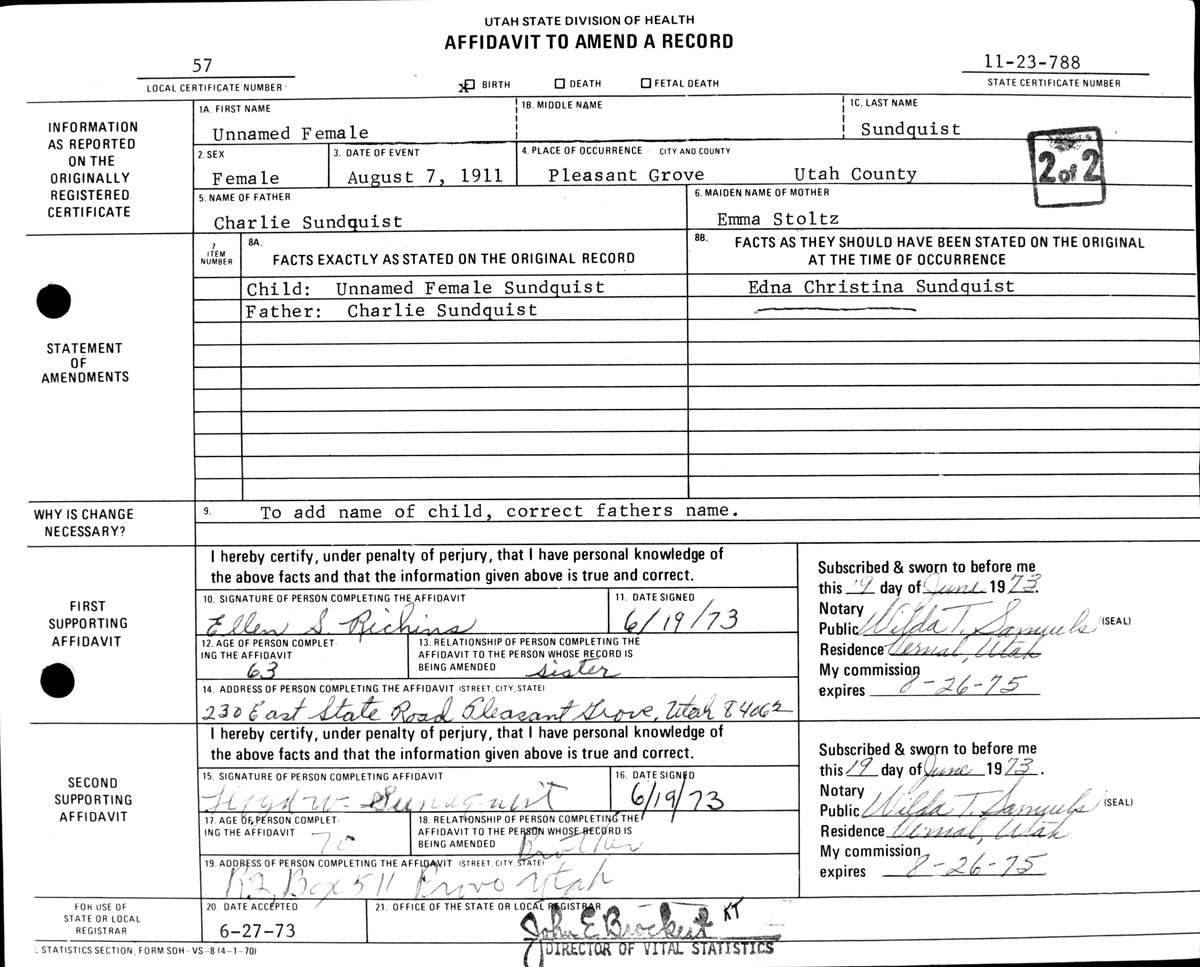 UTAH STATE DIVISION OF HEALTH
AFFIDAVIT TO AMEND A RECORD
57
LOCAL CERTIFICATE NUMBER
X BIRTH DEATH FETAL DEATH
11-23-788
STATE CERTIFICATE NUMBER
INFORMATION
AS REPORTED
ON THE
ORIGINALLY
REGISTERED
CERTIFICATE
1A. FIRST NAME
Unnamed Female
1B. MIDDLE NAME
1C. LAST NAME
Sundquist
2. SEX
Female
3. DATE OF EVENT
August 7, 1911
4. PLACE OF OCCURRENCE CITY AND COUNTY
Pleasant Grove Utah County
2 of 2
5. NAME OF FATHER
Charlie Sundquist
6. MAIDEN NAME OF MOTHER
Emma Stoltz
STATEMENT
OF
AMENDMENTS
7
ITEM
NUMBER
8A.
FACTS EXACTLY AS STATED ON THE ORIGINAL RECORD
8B. FACTS AS THEY SHOULD HAVE BEEN STATED ON THE ORIGINAL
AT THE TIME OF OCCURRENCE
Child: Unnamed Female Sundquist
Edna Christina Sundquist
Father: Charlie Sundquist
WHY IS CHANGE
NECESSARY?
9. To add name of child, correct fathers name.
FIRST
SUPPORTING
AFFIDAVIT
I hereby certify, under penalty of perjury, that I have personal knowledge of
the above facts and that the information given above is true and correct.
10. SIGNATURE OF PERSON COMPLETING THE AFFIDAVIT
Ellen S. Richins
11. DATE SIGNED
6/19/73
12. AGE OF PERSON COMPLET-
ING THE AFFIDAVIT
63
13. RELATIONSHIP OF PERSON COMPLETING THE
AFFIDAVIT TO THE PERSON WHOSE RECORD IS
BEING AMENDED sister
14. ADDRESS OF PERSON COMPLETING THE AFFIDAVIT (STREET, CITY, STATE)
230 East State Road Pleasant Grove, Utah 84062
Subscribed & sworn to before me
this 19 day of June 1973.
Notary
Public Wilda T. Samuels (SEAL)
Residence Vernal, Utah
My commission
expires 8-26-75
SECOND
SUPPORTING
AFFIDAVIT
I hereby certify, under penalty of perjury, that I have personal knowledge of
the above facts and that the information given above is true and correct.
15. SIGNATURE OF PERSON COMPLETING AFFIDAVIT
W. Sundquist
16. DATE SIGNED
6/19/73
17. AGE OF PERSON COMPLET-
ING THE AFFIDAVIT 70
18. RELATIONSHIP OF PERSON COMPLETING THE
AFFIDAVIT TO THE PERSON WHOSE RECORD IS
BEING AMENDED Brother
19. ADDRESS OF PERSON COMPLETING THE AFFIDAVIT (STREET, CITY, STATE)
Box 511 Provo Utah
Subscribed & sworn to before me
this 19 day of June 1973.
Notary
Public Wilda T. Samuels (SEAL)
Residence Vernal, Utah
My commission
expires 8-26-75
FOR USE OF
STATE OR LOCAL
REGISTRAR
20. DATE ACCEPTED
6-27-73
21. OFFICE OF THE STATE OR LOCAL REGISTRAR
John E Brockert KT
DIRECTOR OF VITAL STATISTICS
STATISTICS SECTION, FORM SDH-VS-8 (4-1-70)